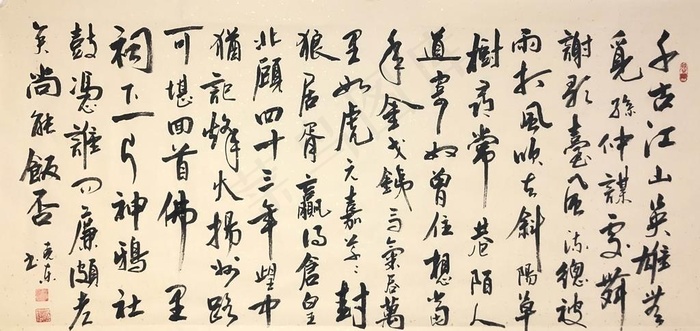 千古江山英雄無
覓孫仲謀處舞
謝歌臺風流總被
雨打風吹去斜陽草
樹尋常巷陌人
道寄奴曾住想當
年金戈鐵馬氣吞萬
里如虎元嘉草草封
狼居胥贏得倉皇
北顧四十三年望中
猶記烽火揚州路
可堪回首佛里
祠下一片神鴉社
鼓憑誰問廉頗老
矣尚能飯否